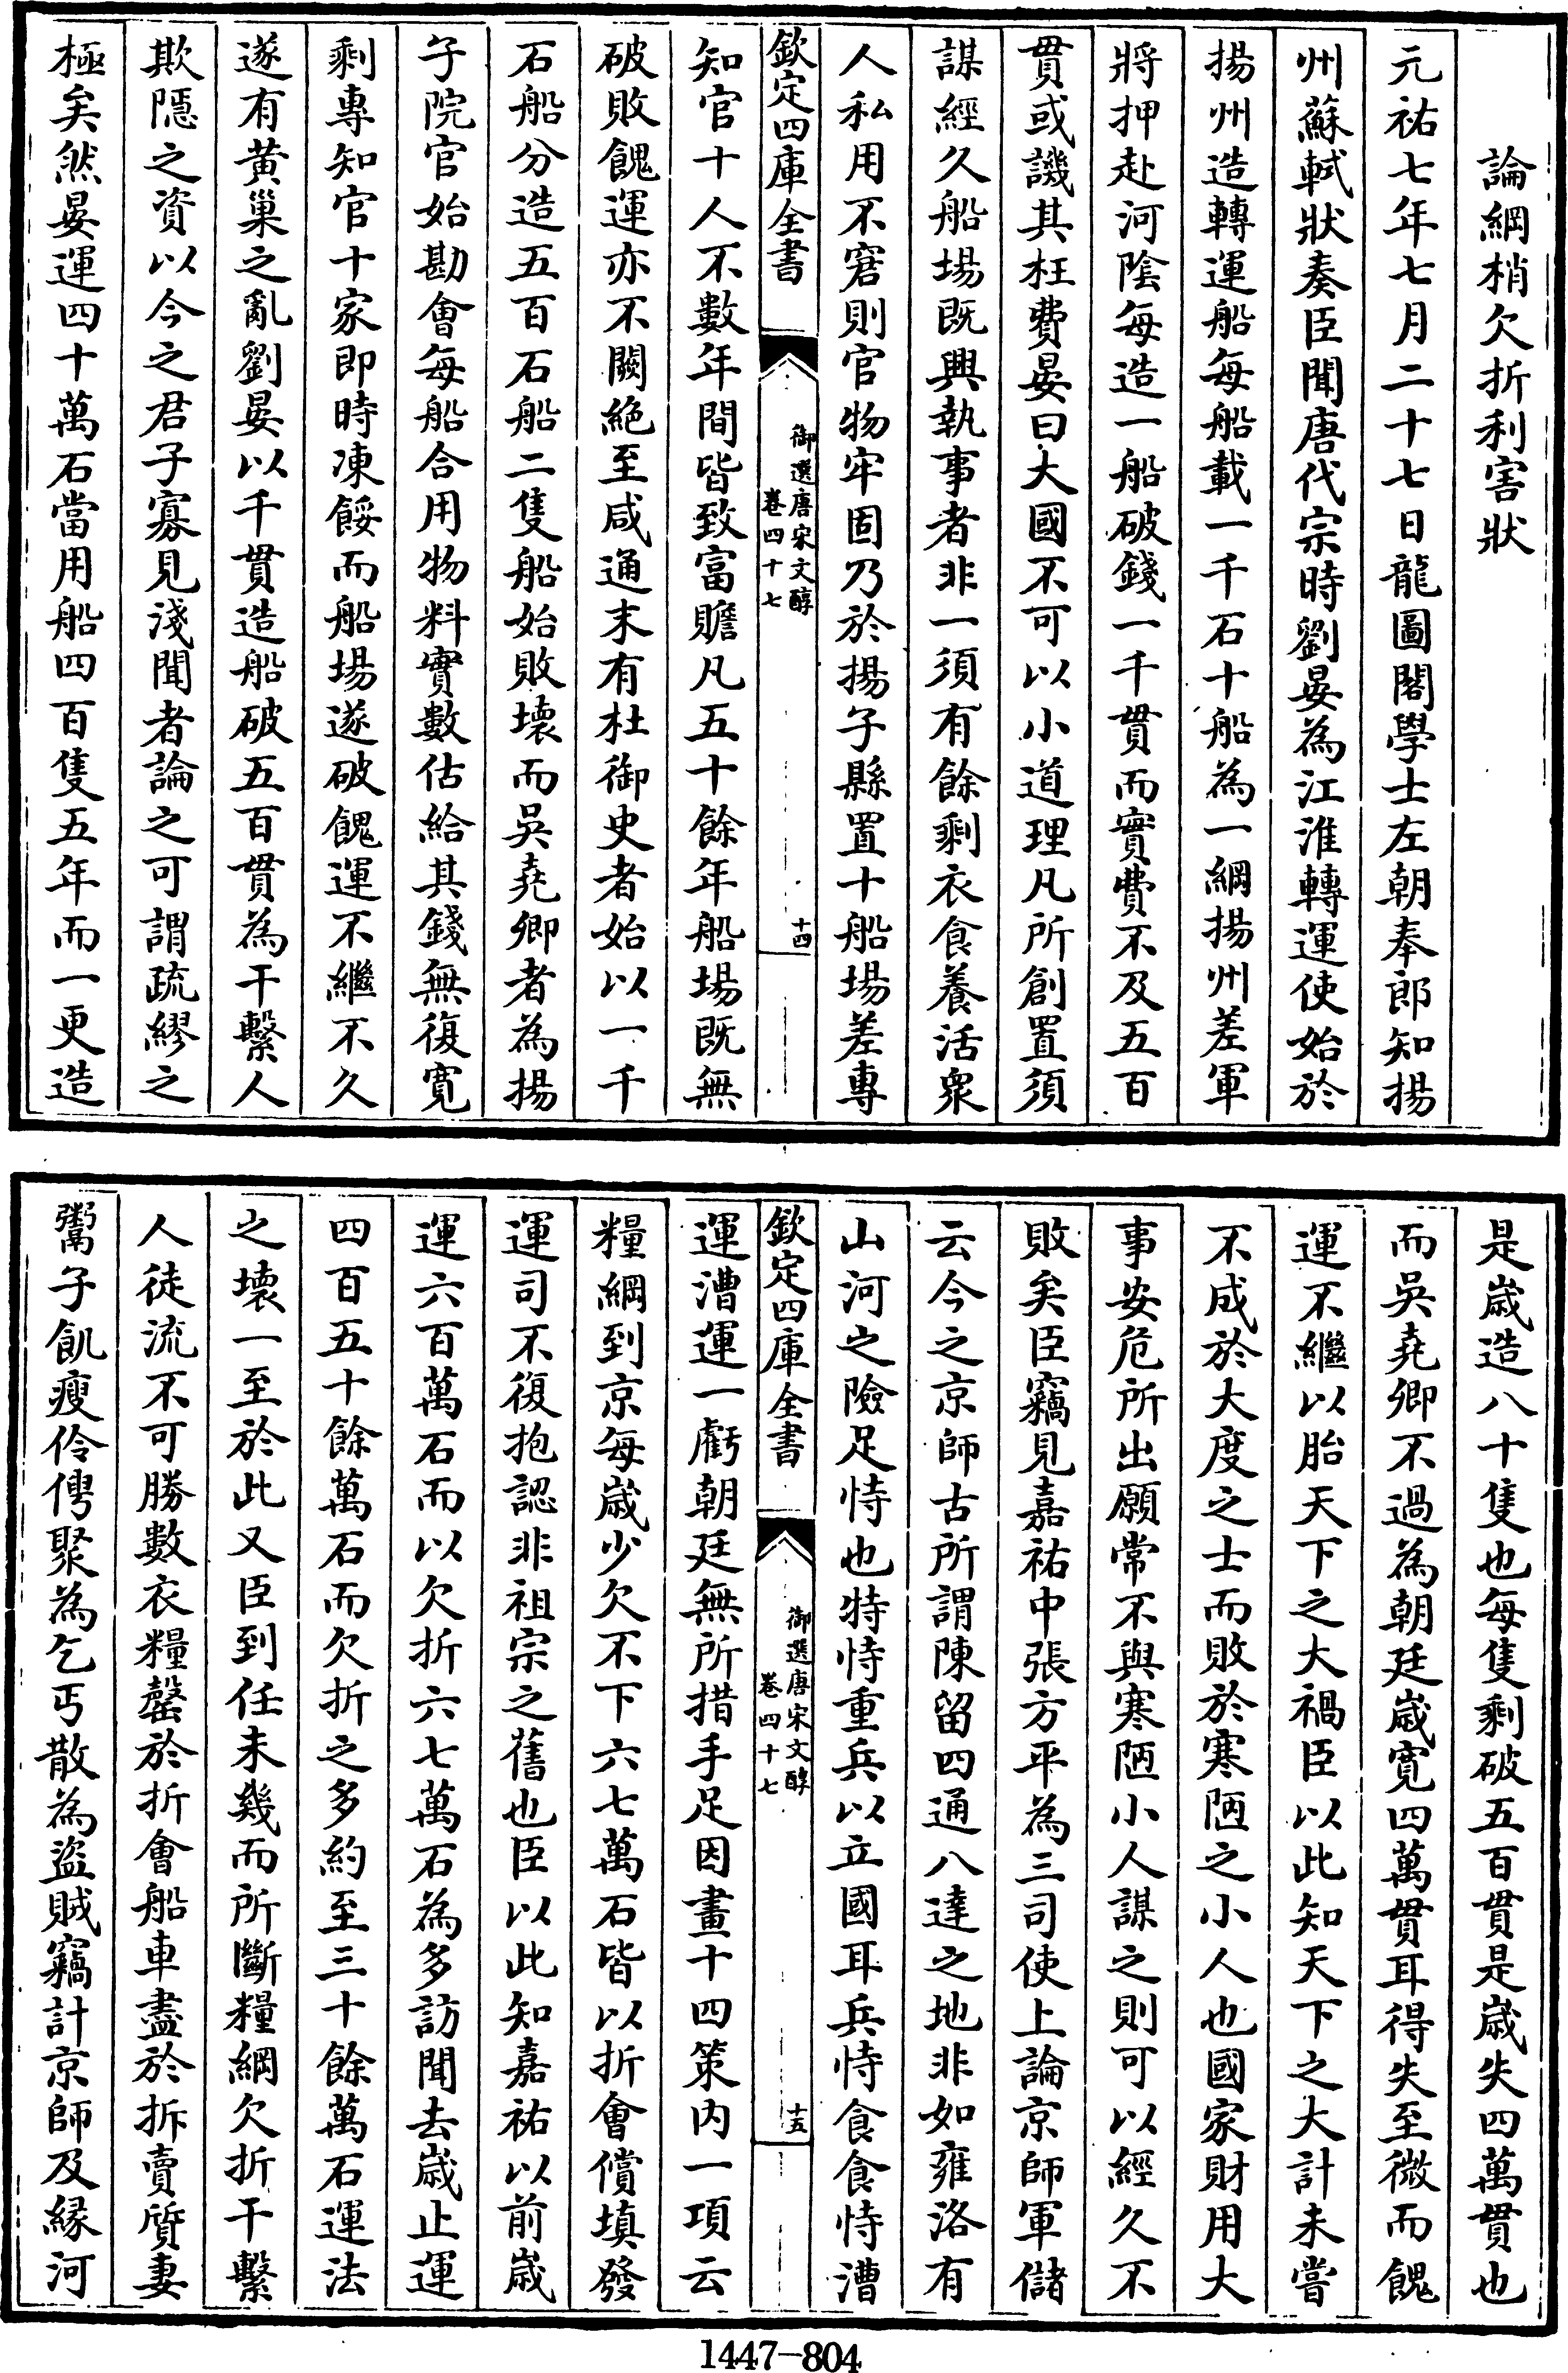 論綱梢欠折利害狀
元祐七年七月二十七日龍圖閣學士左朝奉郎知揚
州蘇軾狀奏臣聞唐代宗時劉晏為江淮轉運使始於
揚州造轉運船每船載一千石十船為一綱揚州差軍
將押赴河陰每造一船破錢一千貫而實費不及五百
貫或譏其枉費晏曰大國不可以小道理凡所創置須
謀經久船場既興執事者非一須有餘剩衣食養活衆
人私用不窘則官物牢固乃於揚子縣置十船場差專
欽定四庫全書
御選唐宋文醇
卷四十七
十四
知官十人不數年間皆致富贍凡五十餘年船場既無
破敗餽運亦不闕絶至咸通末有杜御史者始以一千
石船分造五百石船二隻船始敗壊而吳堯卿者為揚
子院官始勘會每船合用物料實數估給其錢無復寛
剩專知官十家即時凍餒而船場遂破餽運不繼不久
遂有黄巢之亂劉晏以千貫造船破五百貫為干繫人
欺隱之資以今之君子寡見淺聞者論之可謂疏繆之
極矣然晏運四十萬石當用船四百隻五年而一更造
是嵗造八十隻也每隻剩破五百貫是嵗失四萬貫也
而吳堯卿不過為朝廷嵗寛四萬貫耳得失至微而餽
運不繼以胎天下之大禍臣以此知天下之大計未嘗
不成於大度之士而敗於寒陋之小人也國家財用大
事安危所出願常不與寒陋小人謀之則可以經久不
敗矣臣竊見嘉祐中張方平為三司使上論京師軍儲
云今之京師古所謂陳留四通八達之地非如雍洛有
山河之險足恃也特恃重兵以立國耳兵恃食食恃漕
欽定四庫全書
御選唐宋文醇
卷四十七
十五
運漕運一虧朝廷無所措手足因畫十四策内一項云
糧綱到京每嵗少欠不下六七萬石皆以折會償填發
運司不復抱認非祖宗之舊也臣以此知嘉祐以前嵗
運六百萬石而以欠折六七萬石為多訪聞去嵗止運
四百五十餘萬石而欠折之多約至三十餘萬石運法
之壊一至於此又臣到任未幾而所斷糧綱欠折干繫
人徒流不可勝數衣糧罄於折會船車盡於拆賣質妻
鬻子飢瘦伶俜聚為乞丐散為盗賊竊計京師及縁河
1447-804